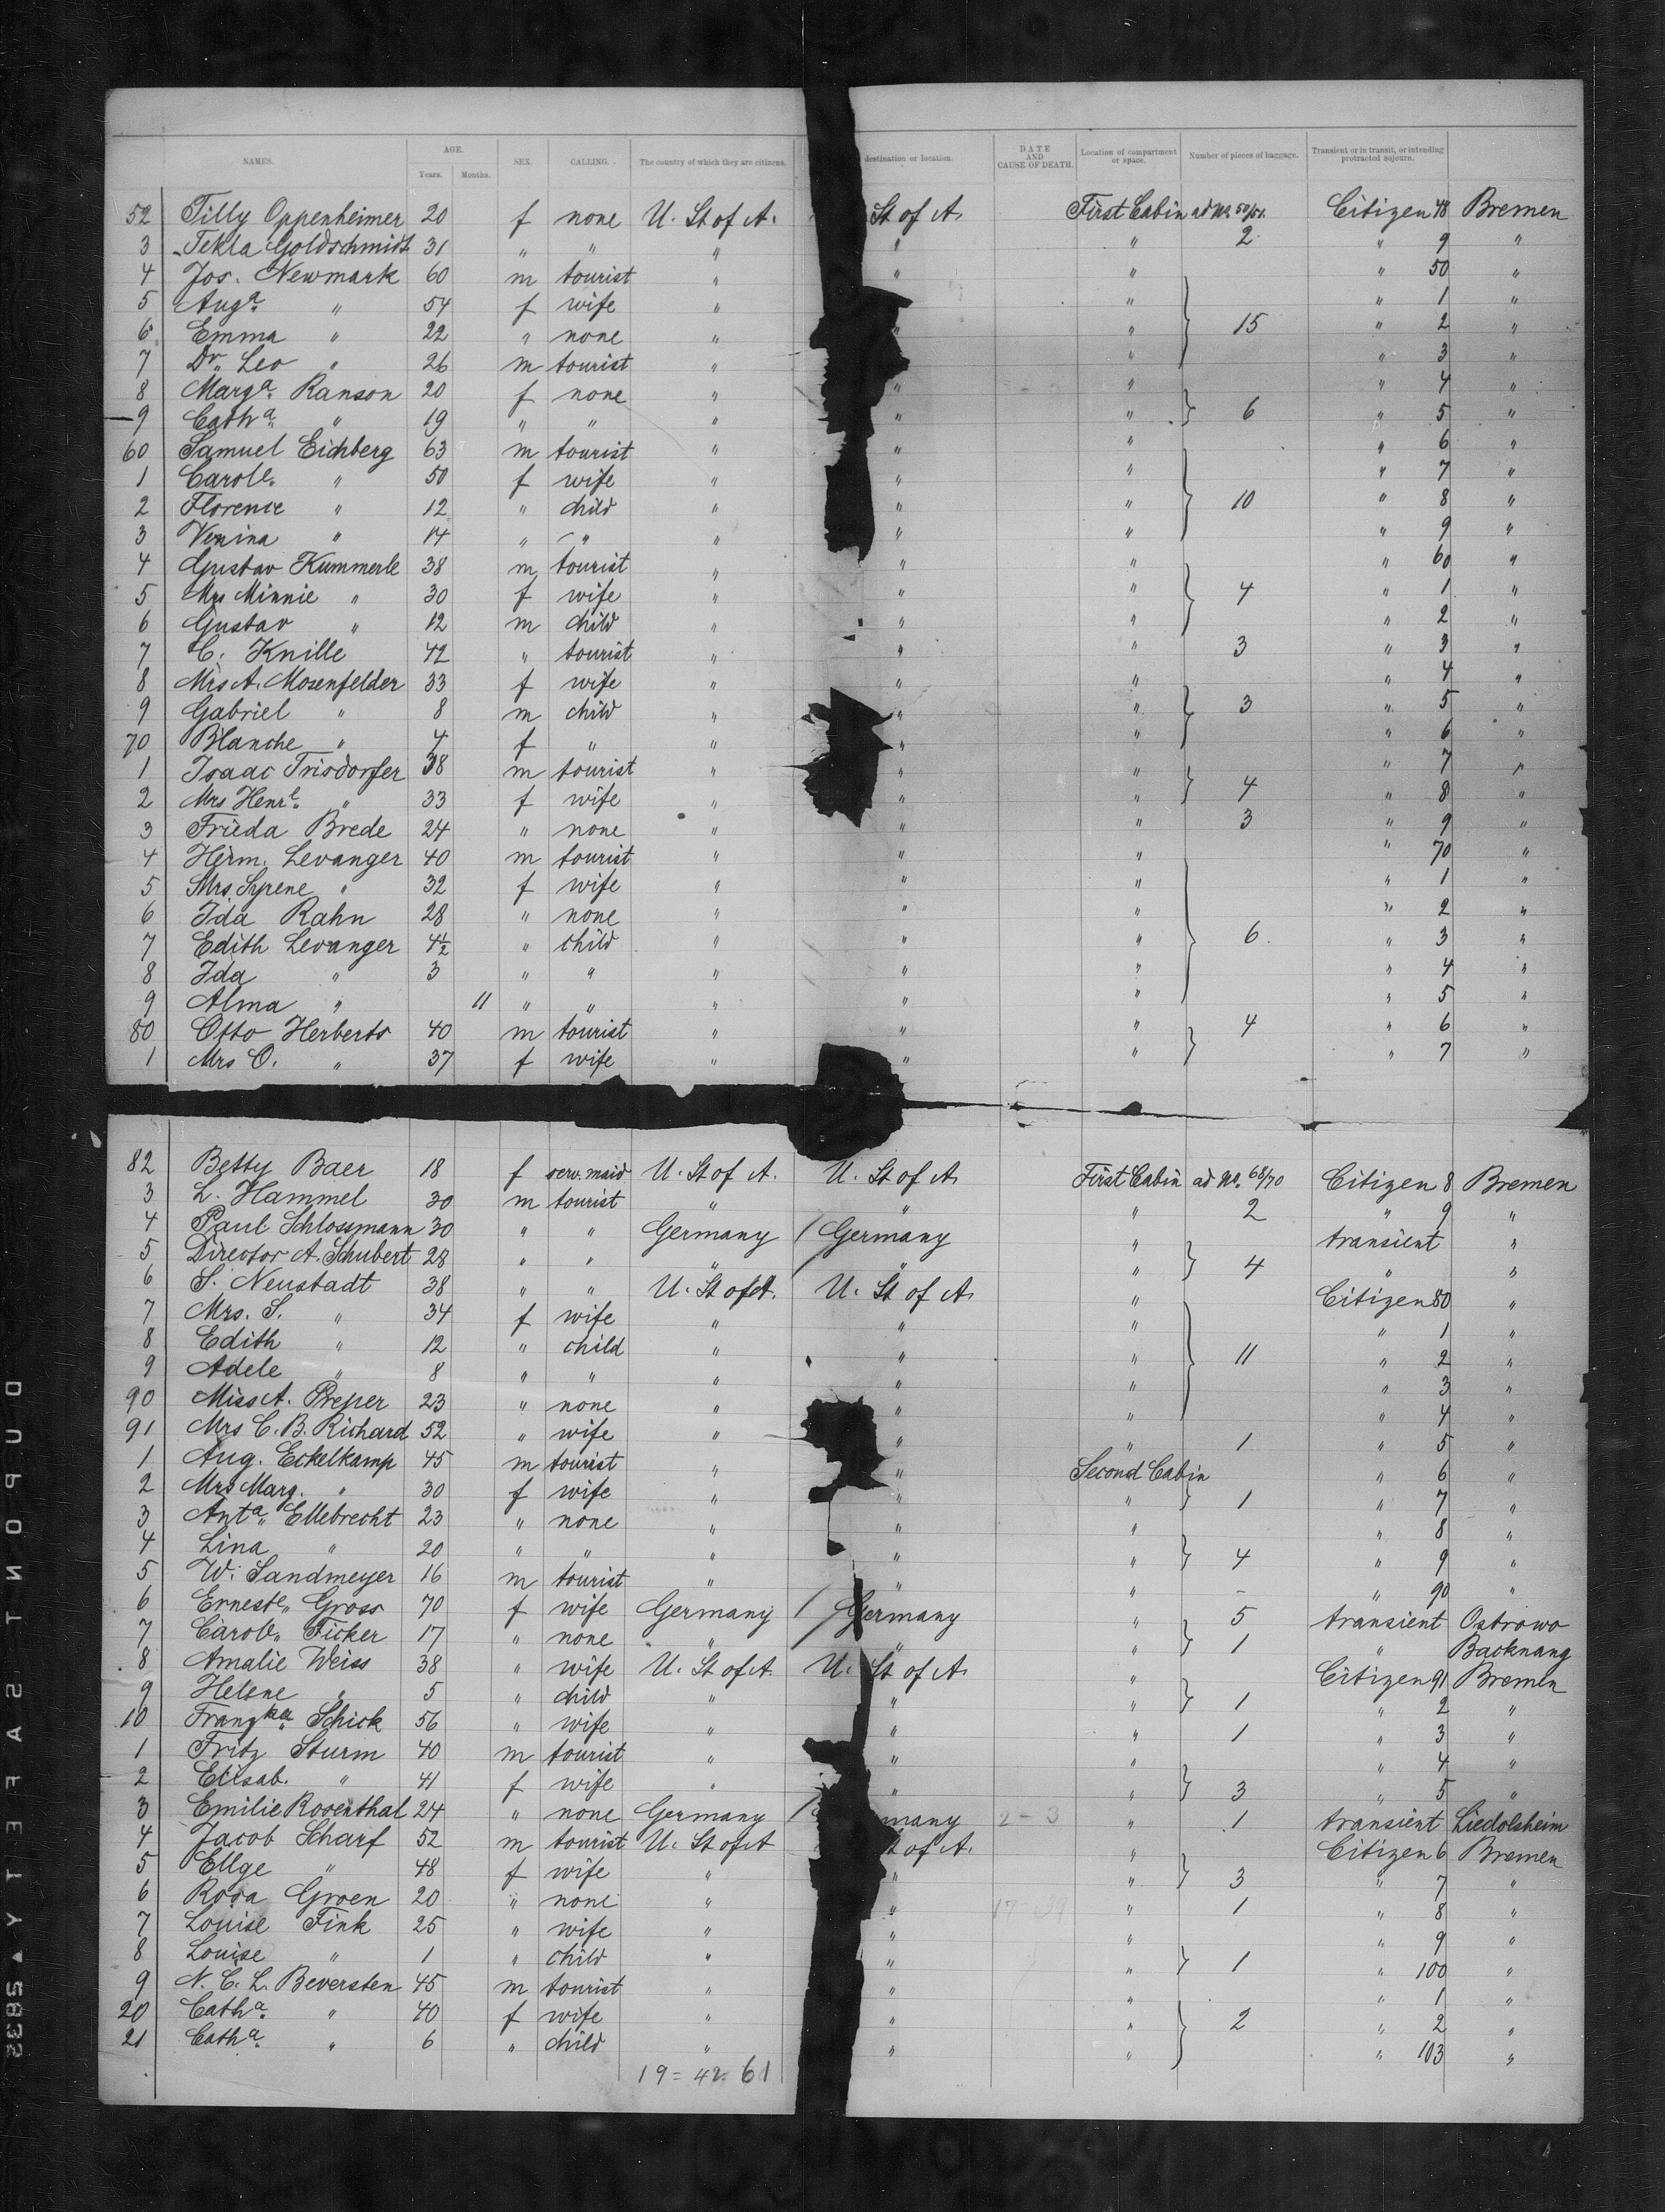 NAMES. AGE. SEX. CALLING. The country of which they are citizens. destination or location. DATE AND CAUSE OF DEATH. Location of compartment or space. Number of pieces of baggage. Transient or in transit, or intending protracted sojourn.
Years. Months.
52 Tilly Oppenheimer 20 f none U. St of A. St of A. First Cabin ad No. 50/51. Citizen 48 Bremen
3 Tekla Goldschmidt 31 " " " " " 2 " 9 "
4 Jos. Newmark 60 m tourist " " " " 50 "
5 Auga. " 54 f wife " " " " 1 "
6 Emma " 22 " none " " " 15 " 2 "
7 Dr. Leo " 26 m tourist " " " " 3 "
8 Marga. Ranson 20 f none " " " " 4 "
9 Catha. " 19 " " " " " 6 " 5 "
60 Samuel Eichberg 63 m tourist " " " " 6 "
1 Carole. " 50 f wife " " " " 7 "
2 Florence " 12 " child " " " 10 " 8 "
3 Venina " 14 " " " " " " 9 "
4 Gustav Kummerle 38 m tourist " " " " 60 "
5 Mrs Minnie " 30 f wife " " " 4 " 1 "
6 Gustav " 12 m child " " " " 2 "
7 C. Knille 42 " tourist " " " 3 " 3 "
8 Mrs A. Mosenfelder 33 f wife " " " " 4 "
9 Gabriel " 8 m child " " " 3 " 5 "
70 Blanche " 4 f " " " " " 6 "
1 Isaac Trisdorfer 38 m tourist " " " " 7 "
2 Mrs Henre. " 33 f wife " " " 4 " 8 "
3 Frieda Brede 24 " none " " " 3 " 9 "
4 Herm. Levanger 40 m tourist " " " " 70 "
5 Mrs. Syrene " 32 f wife " " " " 1 "
6 Ida Rahn 28 " none " " " " 2 "
7 Edith Levanger 4½ " child " " " 6 " 3 "
8 Ida " 3 " " " " " " 4 "
9 Alma " 11 " " " " " " 5 "
80 Otto Herberts 40 m tourist " " " 4 " 6 "
1 Mrs O. " 37 f wife " " " " 7 "
82 Betty Baer 18 f serv. maid U. St of A. U. St of A. First Cabin ad No. 68/70 Citizen 8 Bremen
3 L. Hammel 30 m tourist " " " 2 " 9 "
4 Paul Schlossmann 30 " " Germany / Germany " transient "
5 Director A. Schubert 28 " " " " " 4 " "
6 S. Neustadt 38 " " U. St of A. U. St of A. " Citizen 80 "
7 Mrs. S. " 34 f wife " " " " 1 "
8 Edith " 12 " child " " " 11 " 2 "
9 Adele " 8 " " " " " " 3 "
90 Miss A. Preper 23 " none " " " " 4 "
91 Mrs C. B. Richard 52 " wife " " " 1 " 5 "
1 Aug. Eckelkamp 45 m tourist " " Second Cabin " 6 "
2 Mrs Marg. " 30 f wife " " " 1 " 7 "
3 Anta. Ellebrecht 23 " none " " " " 8 "
4 Lina " 20 " " " " " 4 " 9 "
5 W. Sandmeyer 16 m tourist " " " - " 90 "
6 Erneste. Gross 70 f wife Germany / Germany " 5 transient Ostrowo
7 Carole. Ficker 17 " none " " " 1 " Backnang
8 Amalie Weiss 38 " wife U. St of A. U. St of A. " Citizen 91 Bremen
9 Helene " 5 " child " " " 1 " 2 "
10 Franzka. Schick 56 " wife " " " 1 " 3 "
1 Fritz Sturm 40 m tourist " " " " 4 "
2 Elisab. " 41 f wife " " " 3 " 5 "
3 Emilie Rosenthal 24 " none Germany / many 2 - 3 " 1 transient Liedolsheim
4 Jacob Scharf 52 m tourist U. St of A t of A. " Citizen 6 Bremen
5 Ellge " 48 f wife " " " 3 " 7 "
6 Rosa Groen 20 " none " " " 1 " 8 "
7 Louise Fink 25 " wife " " " " 9 "
8 Louise " 1 " child " " " 1 " 100 "
9 N. C. L. Beversten 45 m tourist " " " " 1 "
20 Catha. " 40 f wife " " " 2 " 2 "
21 Catha. " 6 " child " " " " 103 "
19 = 42 = 61
DUPONT SAFETY ▲ 5833